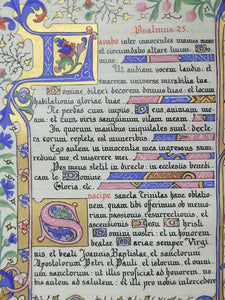 Psalmus 25.
Lavabo inter innocentes manus meas
et circumdabo altare tuum
omine.
Ut audiam vocem laudis, et
enarrem universa mirabilia tua.
Domine, dilexi decorem domus tuæ, et locum
habitationis gloriæ tuæ.
Ne perdas cum impiis Deus, animam me-
am: et cum viris sanguinum vitam meam.
In quorum manibus iniquitates sunt: dexte
ra eorum repleta est muneribus.
Ego autem in innocentia mea ingressus sum:
redime me, et miserere mei.
Pes meus stetit in directo: in ecclesiis benedi
cam te. Domine.
Gloria, etc.
Suscipe sancta Trinitas hanc oblatio
nem, quam tibi offerimus ob memo
riam passionis, resurrectionis, et
ascensionis Jesu Christi
Domini nostri: et in honorem
beatæ Mariæ semper Virgi
nis, et beati Joannis Baptistæ, et sanctorum
Apostolorum Petri et Pauli, et istorum, et
omnium sanctorum: ut illis proficiat ad honorem,
nobis autem ad salutem: et illi pro no